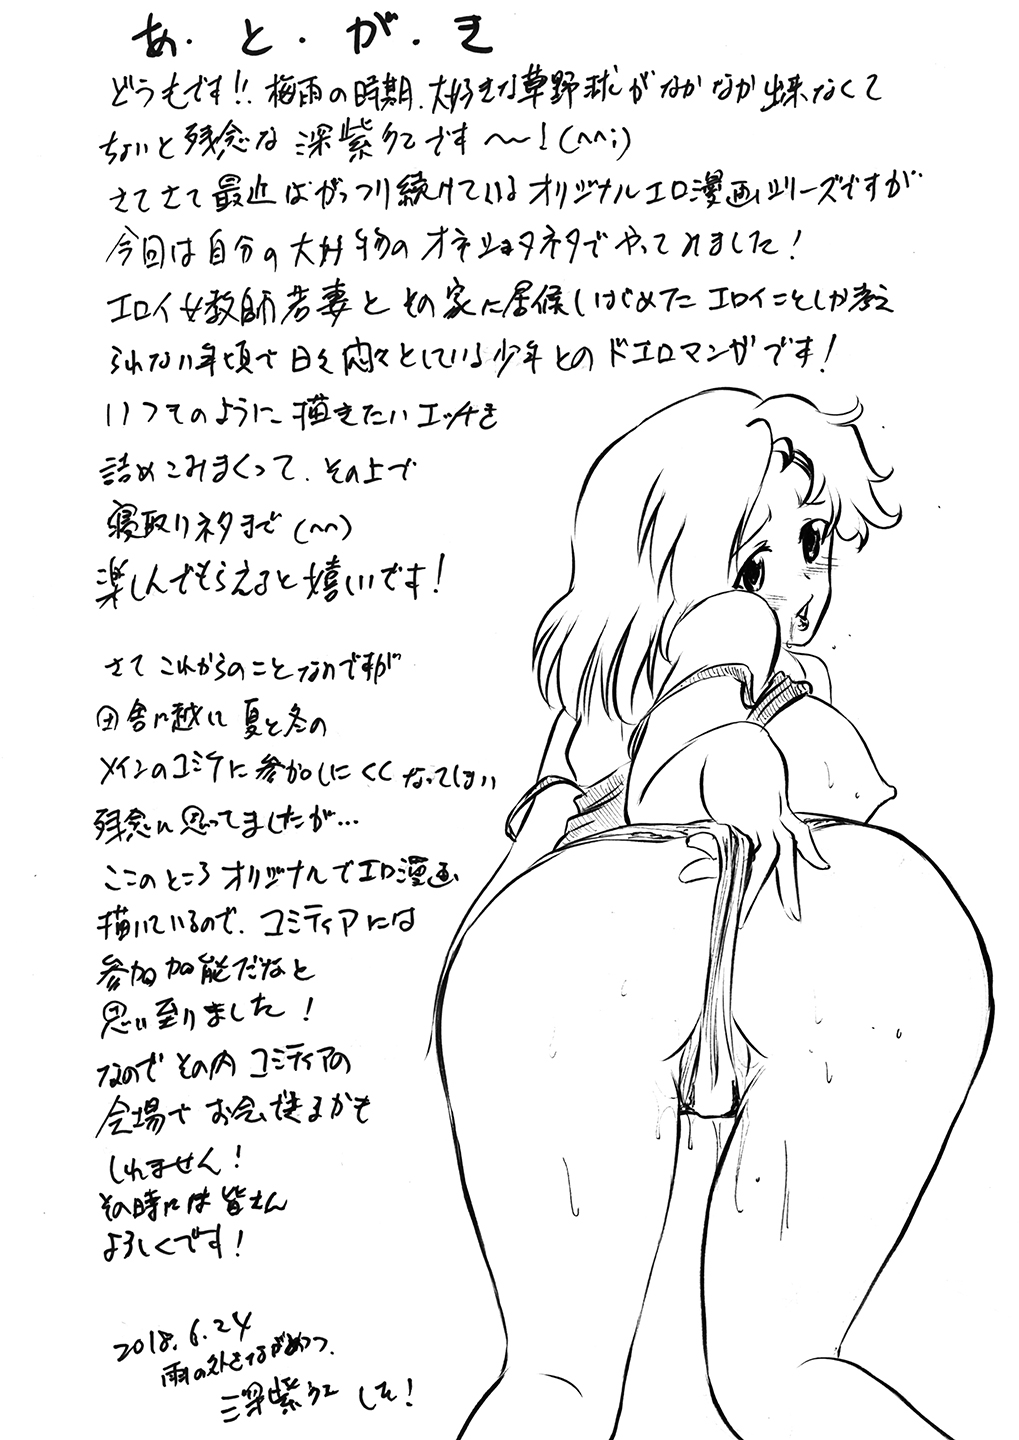 あ・と・が・き
どうもです!!梅雨の時期、大好きな草野球がなかなか出来なくて
ちょいと残念な 深紫シエです〜〜!(^^;)
さてさて最近はがっつり続けているオリジナルエロ漫画シリーズですが
今回は自分の大好物のオネショタネタでやってみました!
エロイ女教師若妻とその家に居候しはじめたエロイことしか考え
られない年頃で日々悶々としている少年とのドエロマンガです!
いつものように描きたいエッチを
詰めこみまくって、その上で
寝取りネタまで(^^)
楽しんでもらえると嬉しいです!
さてこれからのことなのですが
田舎に越して夏と冬の
メインのコミケに参加しにくくなってしまい
残念に思ってましたが…
ここのところオリジナルでエロ漫画
描いているので、コミティアには
参加可能だなと
思い至りました!
なのでその内コミティアの
会場でお会いできるかも
しれません!
その時には皆さん
よろしくです!
2018.6.24
雨の外をながめつつ、